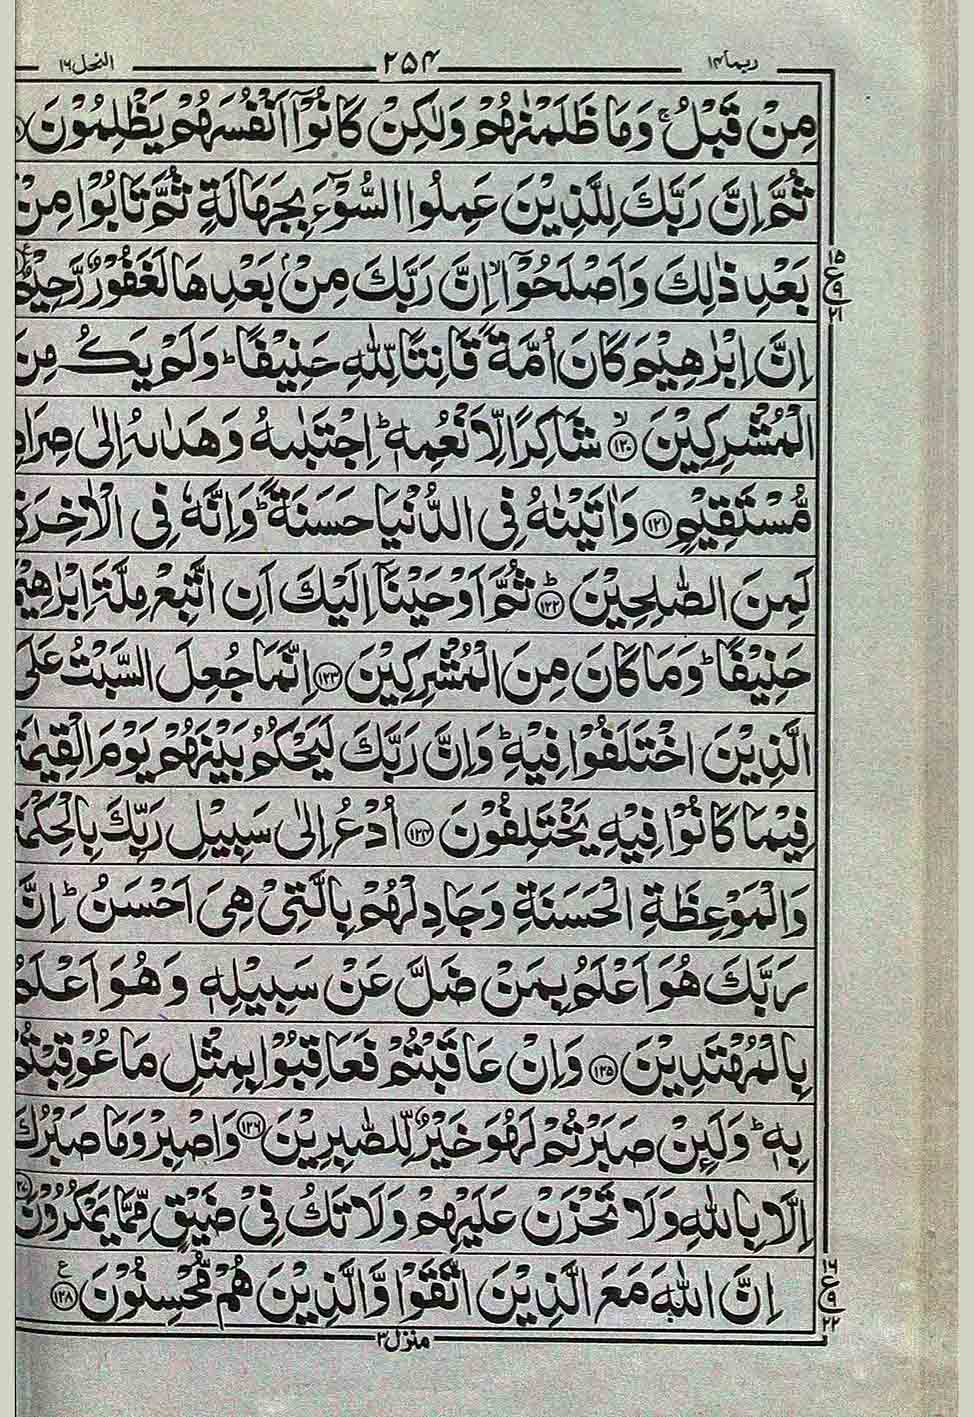 ربما ١٤ ٢٥٤ النحل ١٦
مِنْ قَبْلُ ۚ وَمَا ظَلَمْنٰهُمْ وَلٰكِنْ كَانُوْۤا اَنْفُسَهُمْ يَظْلِمُوْنَ
ثُمَّ اِنَّ رَبَّكَ لِلَّذِيْنَ عَمِلُوا السُّوْٓءَ بِجَهَالَةٍ ثُمَّ تَابُوْا مِنْۢ
بَعْدِ ذٰلِكَ وَاَصْلَحُوْۤا ۙ اِنَّ رَبَّكَ مِنْۢ بَعْدِهَا لَغَفُوْرٌ رَّحِيْمٌ
١٥ ع ٩ ٢١
اِنَّ اِبْرٰهِيْمَ كَانَ اُمَّةً قَانِتًا لِّلّٰهِ حَنِيْفًا ؕ وَلَمْ يَكُ مِنَ
الْمُشْرِكِيْنَ ۙ ﴿١٢٠﴾ شَاكِرًا لِّاَنْعُمِهٖ ؕ اِجْتَبٰىهُ وَهَدٰىهُ اِلٰى صِرَاطٍ
مُّسْتَقِيْمٍ ﴿١٢١﴾ وَاٰتَيْنٰهُ فِى الدُّنْيَا حَسَنَةً ؕ وَاِنَّهٗ فِى الْاٰخِرَةِ
لَمِنَ الصّٰلِحِيْنَ ؕ ﴿١٢٢﴾ ثُمَّ اَوْحَيْنَاۤ اِلَيْكَ اَنِ اتَّبِعْ مِلَّةَ اِبْرٰهِيْمَ
حَنِيْفًا ؕ وَمَا كَانَ مِنَ الْمُشْرِكِيْنَ ﴿١٢٣﴾ اِنَّمَا جُعِلَ السَّبْتُ عَلَى
الَّذِيْنَ اخْتَلَفُوْا فِيْهِ ؕ وَاِنَّ رَبَّكَ لَيَحْكُمُ بَيْنَهُمْ يَوْمَ الْقِيٰمَةِ
فِيْمَا كَانُوْا فِيْهِ يَخْتَلِفُوْنَ ﴿١٢٤﴾ اُدْعُ اِلٰى سَبِيْلِ رَبِّكَ بِالْحِكْمَةِ
وَالْمَوْعِظَةِ الْحَسَنَةِ وَجَادِلْهُمْ بِالَّتِيْ هِيَ اَحْسَنُ ؕ اِنَّ
رَبَّكَ هُوَ اَعْلَمُ بِمَنْ ضَلَّ عَنْ سَبِيْلِهٖ وَهُوَ اَعْلَمُ
بِالْمُهْتَدِيْنَ ﴿١٢٥﴾ وَاِنْ عَاقَبْتُمْ فَعَاقِبُوْا بِمِثْلِ مَا عُوْقِبْتُمْ
بِهٖ ؕ وَلَئِنْ صَبَرْتُمْ لَهُوَ خَيْرٌ لِّلصّٰبِرِيْنَ ﴿١٢٦﴾ وَاصْبِرْ وَمَا صَبْرُكَ
اِلَّا بِاللّٰهِ وَلَا تَحْزَنْ عَلَيْهِمْ وَلَا تَكُ فِيْ ضَيْقٍ مِّمَّا يَمْكُرُوْنَ
اِنَّ اللّٰهَ مَعَ الَّذِيْنَ اتَّقَوْا وَّالَّذِيْنَ هُمْ مُّحْسِنُوْنَ ﴿١٢٨﴾ ع
١٦ ع ٩ ٢٢
منزل ٣